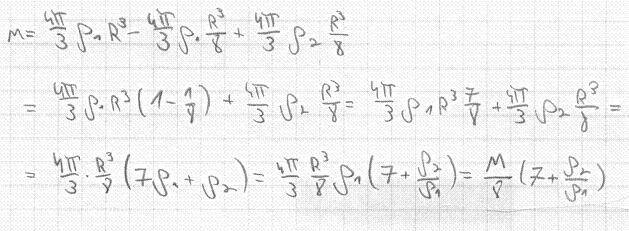 M = 4π/3 ρ₁ R³ - 4π/3 ρ₁ R³/8 + 4π/3 ρ₂ R³/8
= 4π/3 ρ₁ R³ (1 - 1/8) + 4π/3 ρ₂ R³/8 = 4π/3 ρ₁ R³ 7/8 + 4π/3 ρ₂ R³/8 =
= 4π/3 · R³/8 (7ρ₁ + ρ₂) = 4π/3 R³/8 ρ₁ (7 + ρ₂/ρ₁) = M/8 (7 + ρ₂/ρ₁)